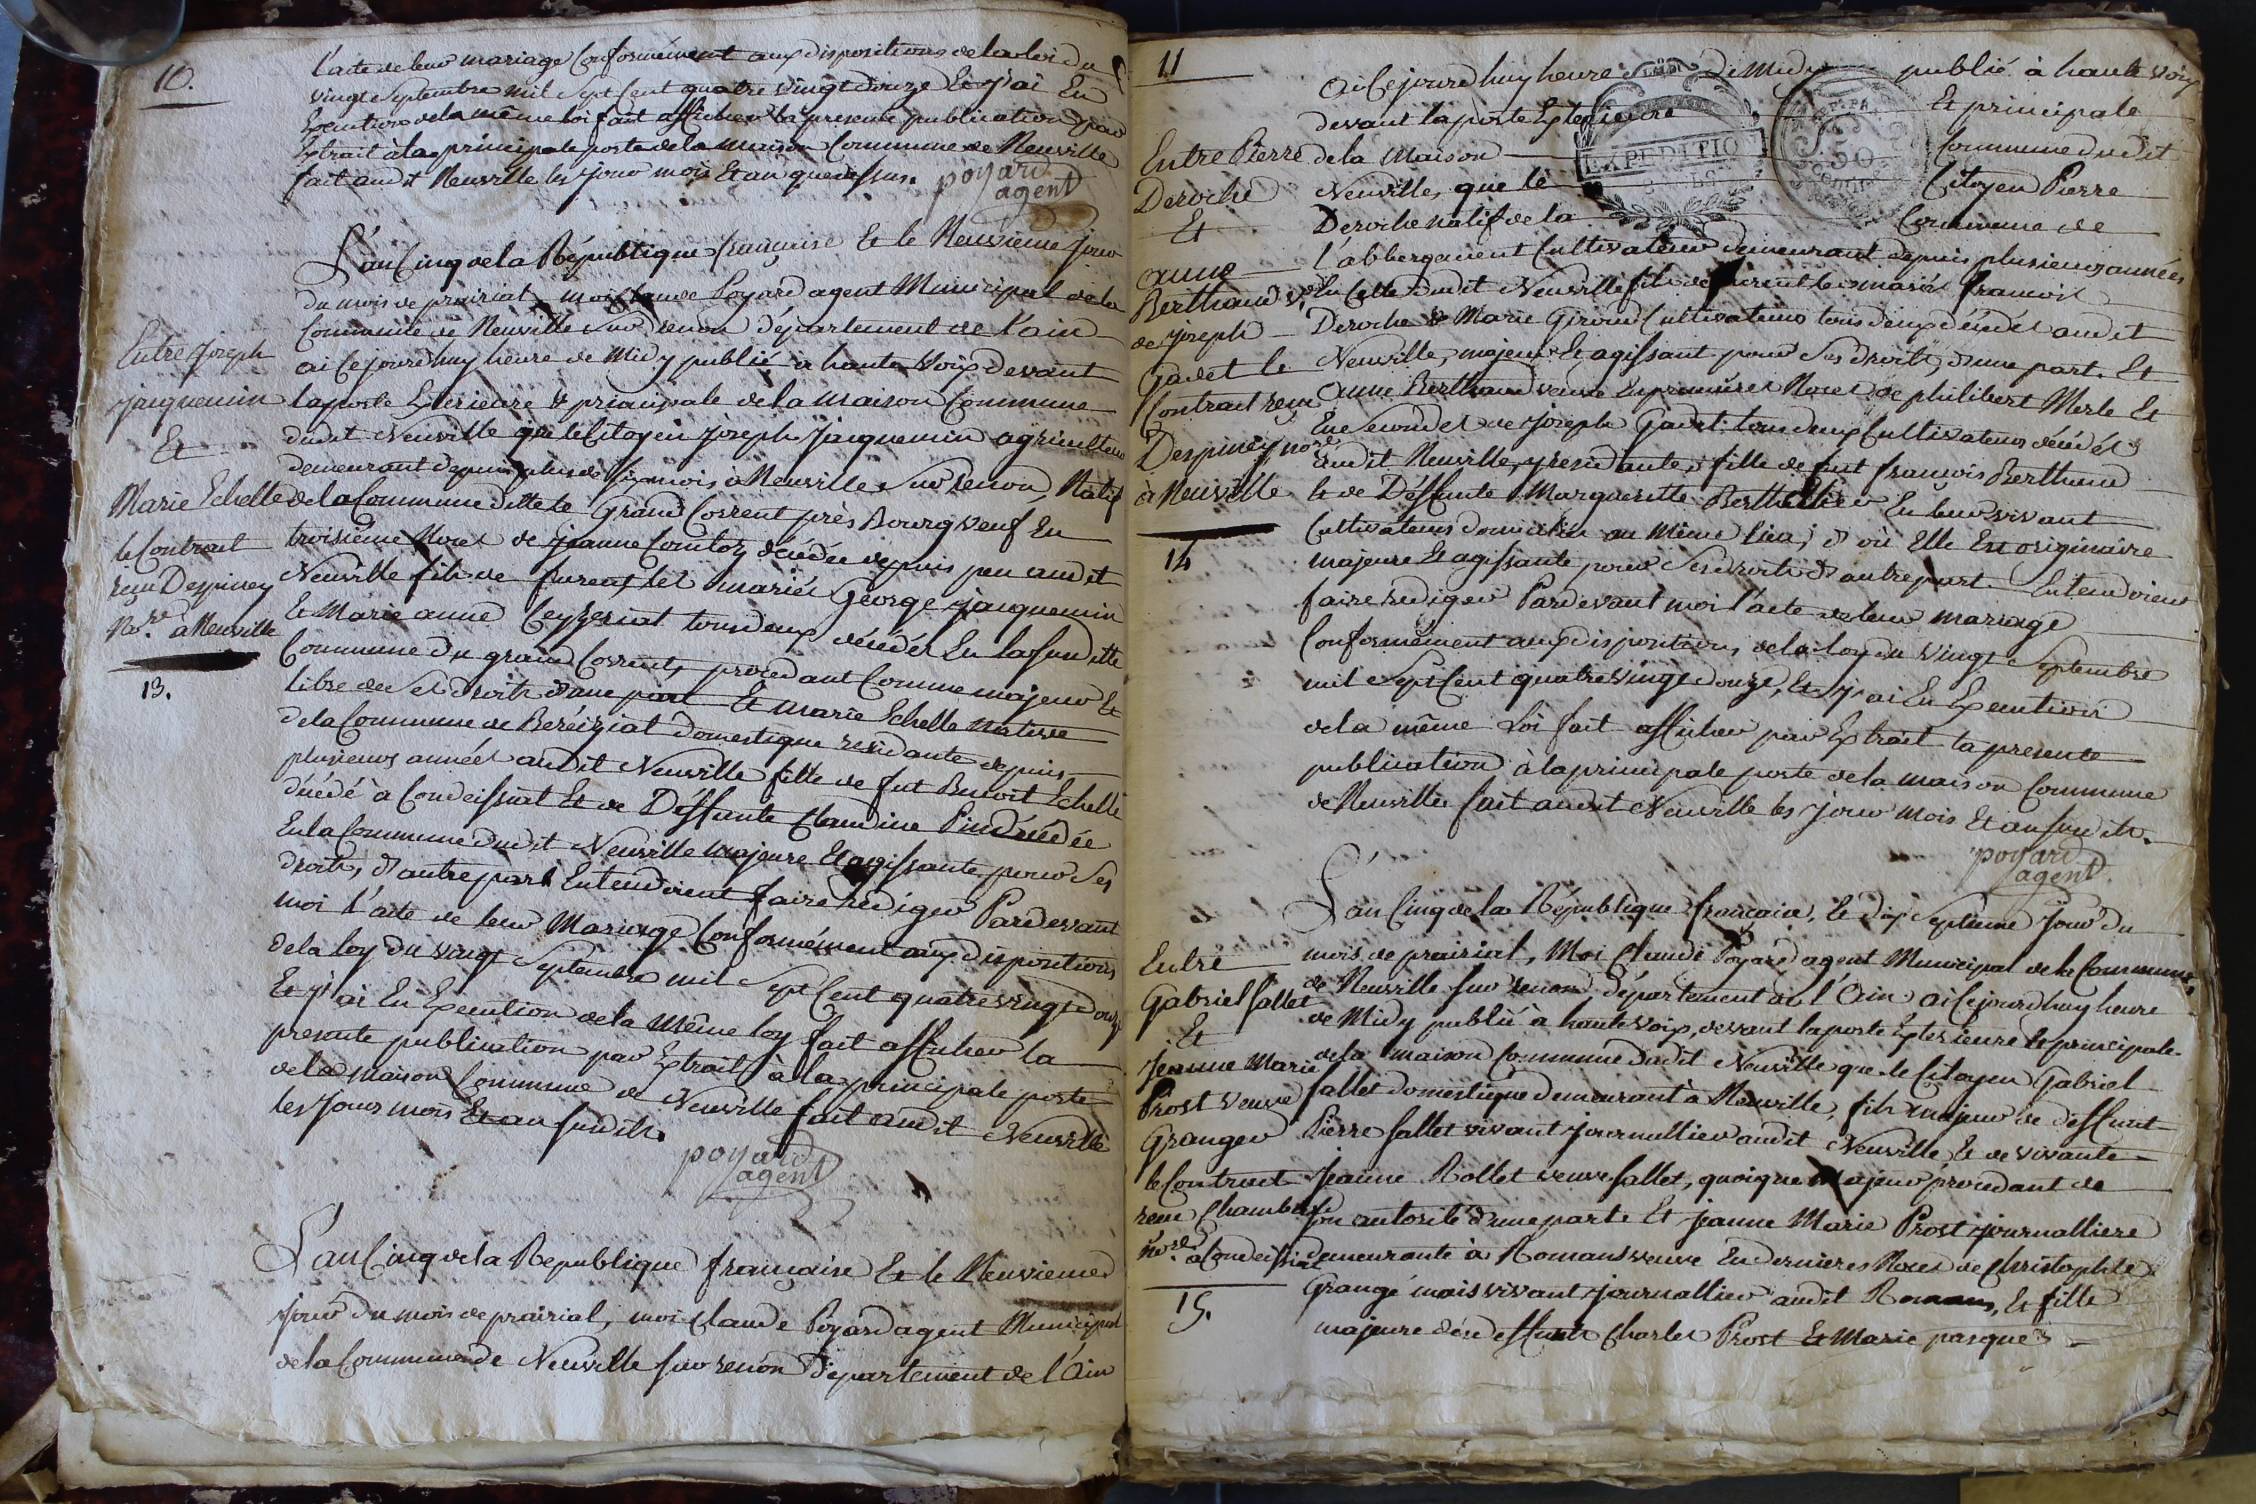 10.
l'acte de leur mariage Conformément aux dispositions de la loi du
vingt Septembre mil Sept Cent quatre vingt douze Et j'ai En
Execution de la même loi fait afficher la presente publication par
Extrait à la principale porte de la maison Commune de Neuville
fait audit Neuville les jour mois Et an que dessus.
poyard
agent
L'an Cinq de la République française Et le Neuvieme jour
du mois de prairial, moi Claude Poyard agent Municipal de la
Commune de Neuville sur renon département de l'ain
ai Cejourdhuy heure de Midy publié a haute Voix devant
la porte Exterieure & principale de la maison Commune
dudit Neuville que le Citoyen Joseph Jacquemin agriculteur
demeurant depuis plus de Six mois à Neuville Sur renon, Natif
de la Commune ditte le Grand Corrent près Bourg veuf En
troisième Noces de Jeanne décédée depuis peu audit
Neuville fils de furent les mariés George Jacquemin
Et Marie anne Ceyzeriat tous deux décédés En la susditte
Commune du grand Corrent, procedant Comme majeur Et
libre de Ses droits d'une part Et marie Echelle native
de la Commune de Beréiziat domestique residante depuis
plusieurs années audit Neuville fille de fut Benoit Echelle
décédé à Condeissiat Et de Déffunte Claudine Pin décédée
En la Commune dudit Neuville majeure Et agissante pour Ses
droits, d'autre part Entendoient faire rediger Pardevant
moi l'acte de leur Mariage Conformément aux dispositions
de la loy du vingt Septembre mil Sept Cent quatre vingt douze
Et j'ai En Execution de la même loy fait afficher la
presente publication par Extrait à la principale porte
de la maison Commune de Neuville fait audit Neuville
les jours mois Et an susdits.
poyard
agent
Entre Joseph
jacquemin
Et
Marie Echelle
le Contrait
reçu Despiney
No.re a Neuville
13.
L'an Cinq de la Republique française Et le Neuvieme
jour du mois de prairial, moi Claude Poyard agent Municipal
de la Commune de Neuville sur renon Département de l'Ain
11
ai Cejourdhuy heure de Midy publié à haute voix
devant la porte Exterieure Et principale
de la Maison Commune dudit
Neuville, que le Citoyen Pierre
Deroche natif de la Commune de
l'abbergement Cultivateur demeurant depuis plusieurs années
En Celle dudit Neuville fils de furent les mariés francois
Deroche & Marie Giroud Cultivateurs tous deux décédés audit
Neuville, majeur Et agissant pour Ses droits, d'une part. Et
anne Berthaud veuve En premières Noces de philibert Merle Et
En Secondes de Joseph Gadet tous deux Cultivateurs décédés
audit Neuville, y residante, fille de fut françois Berthaud
Et de Déffunte Margueritte Berthellier En leur vivant
Cultivateurs domiciliés au Même lieu; d'où Elle Est originaire
majeure Et agissante pour Ses droits d'autre part. Entendoient
faire rediger Pardevant moi l'acte de leur mariage
Conformément aux dispositions de la loy du vingt Septembre
mil Sept Cent quatre vingt douze, Et j'ai En Execution
de la même Loi fait afficher par Extrait la presente
publication à la principale porte de la maison Commune
de Neuville fait audit Neuville les jour mois Et an susdits.
poyard
agent
EXPEDITIO
50
Centi
Entre Pierre
Deroche
Et
anne
Berthaud v.e
de joseph
Gadet le
Contrait reçu
Despiney no.re
à Neuville
14
L'an Cinq de la République française, le dix Septieme Jour du
mois de prairial, Moi Claude Poyard agent Municipal de la Commune
de Neuville sur renon département de l'Ain ai Cejourdhuy heure
de Midy publié à haute voix, devant la porte Exterieure & principale
de la maison Commune dudit Neuville que le Citoyen Gabriel
fallet domestique demeurant à Neuville, fils majeur de deffunt
Pierre fallet vivant journallier audit Neuville Et de vivante
Jeanne Rollet veuve fallet, quoique Majeur procedant de
son autorité d'une part Et jeanne Marie Prost journalliere
demeurante à Romans veuve En dernieres Noces de Christophle
Grangé mais vivant journallier audit Romans, Et fille
majeure de deffunts Charles Prost Et Marie pasquer
Entre
Gabriel fallet
Et
Jeanne Marie
Prost veuve
Granger
le Contrait
recu Chambre
No.re a Condeissiat
15.